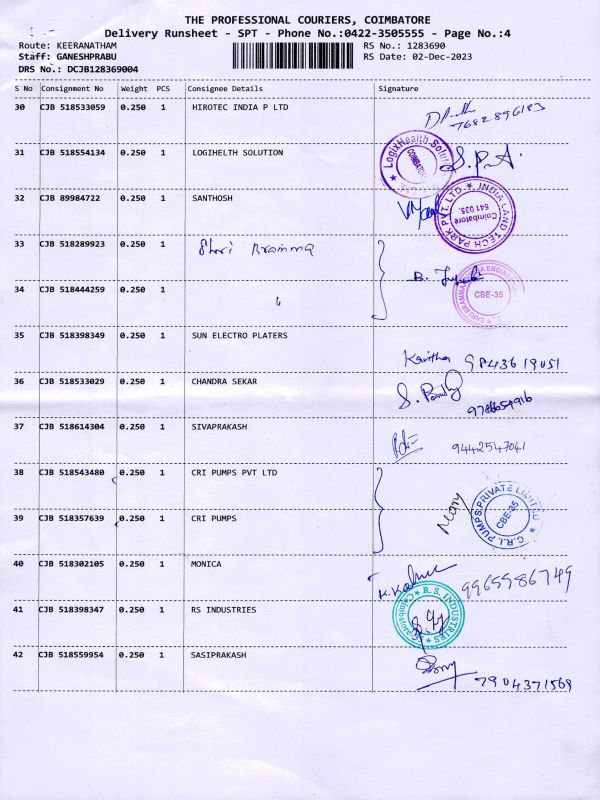 THE PROFESSIONAL COURIERS, COIMBATORE
Delivery Runsheet - SPT - Phone No.:0422-3505555 - Page No.:4
Route: KEERANATHAM RS No.: 1283690
Staff: GANESHPRABU RS Date: 02-Dec-2023
DRS No.: DCJB128369004
S No Consignment No Weight PCS Consignee Details Signature
30 CJB 518533059 0.250 1 HIROTEC INDIA P LTD
7682896183
31 CJB 518554134 0.250 1 LOGIHELTH SOLUTION S.P.A.
LogixHealth COIMBATORE
32 CJB 89984722 0.250 1 SANTHOSH
INDIA LAND TECH PARK PVT. LTD. Coimbatore 641 035.
33 CJB 518289923 0.250 1 Shri Bramma
B.
CBE-35
34 CJB 518444259 0.250 1 "
35 CJB 518398349 0.250 1 SUN ELECTRO PLATERS
Kavitha 9843619051
36 CJB 518533029 0.250 1 CHANDRA SEKAR
S.
37 CJB 518614304 0.250 1 SIVAPRAKASH
9442547041
38 CJB 518543480 0.250 1 CRI PUMPS PVT LTD
Mary
C.R.I. PUMPS PRIVATE LIMITED CBE-35
39 CJB 518357639 0.250 1 CRI PUMPS
40 CJB 518302105 0.250 1 MONICA
9965986749
41 CJB 518398347 0.250 1 RS INDUSTRIES
R.S. INDUSTRIES Coimbatore
42 CJB 518559954 0.250 1 SASIPRAKASH
7904371569